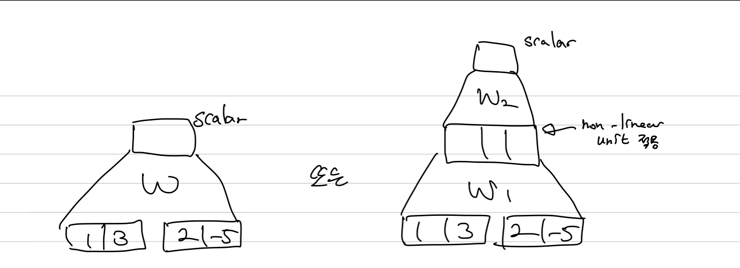 scalar
W
1 3 2 -5
또는
scalar
W₂
non-linear
unit 적용
W₁
1 3 2 -5